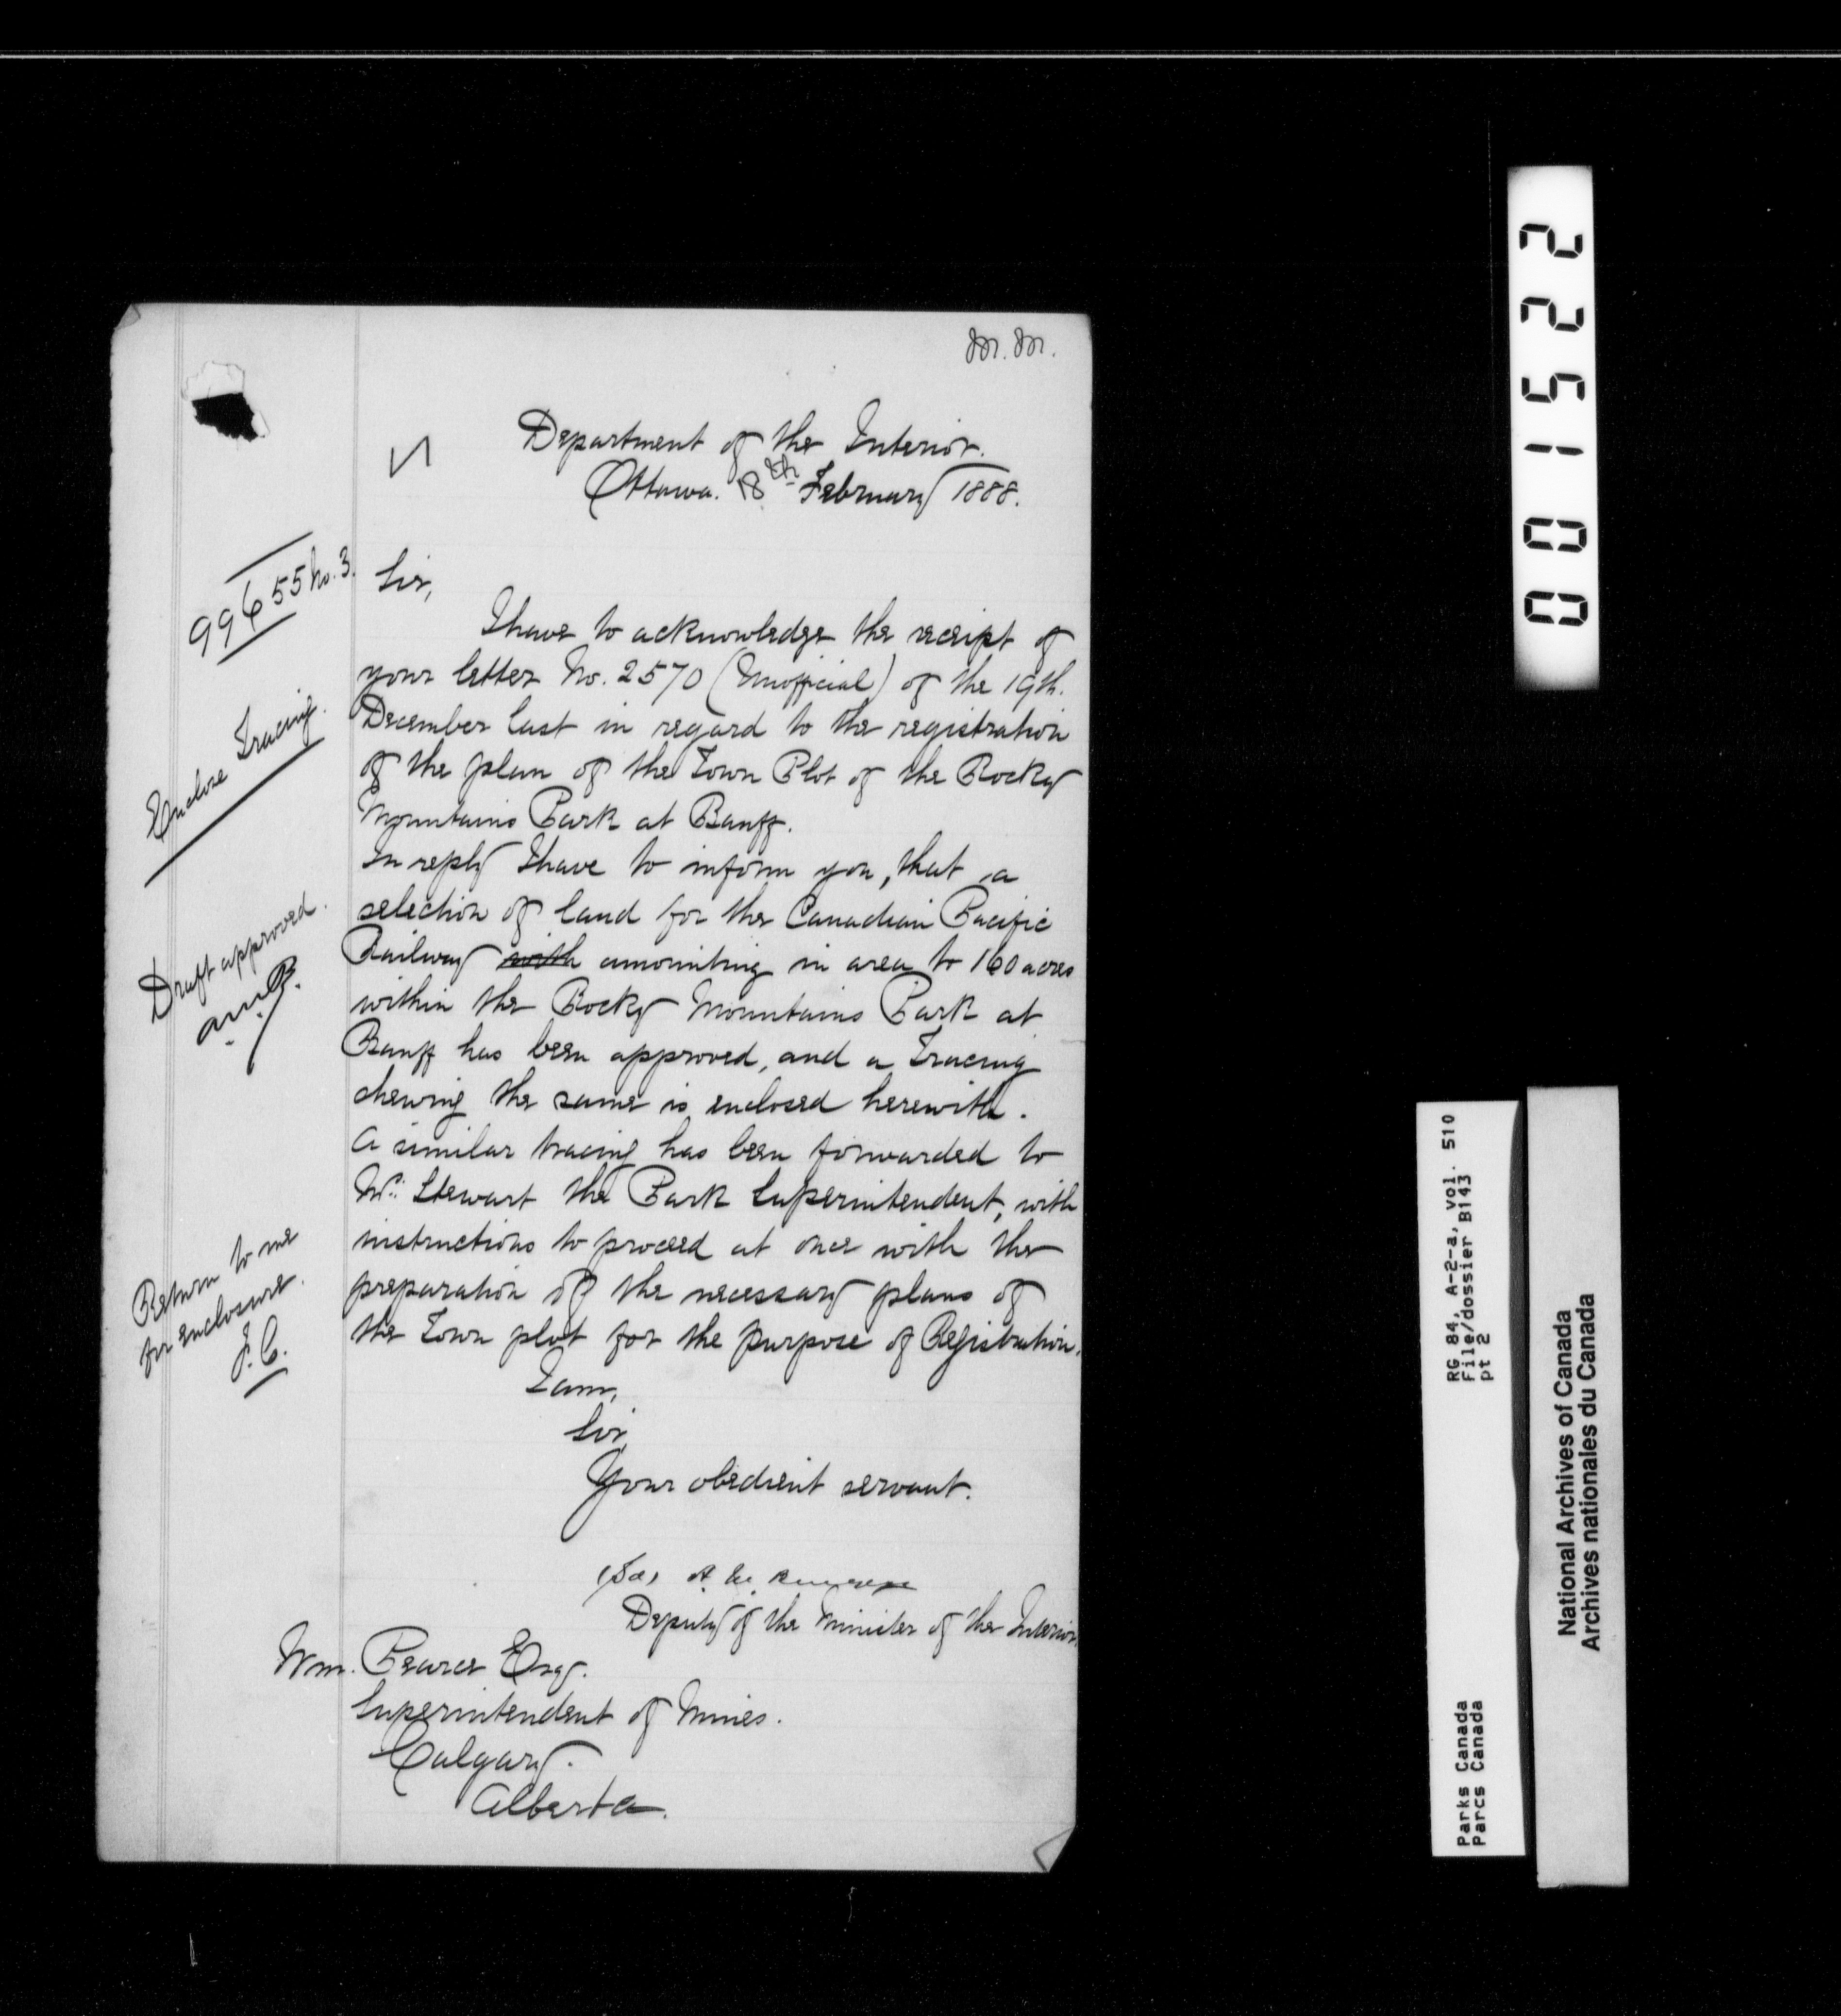 M. M.
Department of the Interior.
Ottawa. 18th February 1888.
99655 No. 3.
Sir,
I have to acknowledge the receipt of
your letter No. 2570 (Unofficial) of the 19th.
December last in regard to the registration
of the plan of the Town Plot of the Rocky
Mountains Park at Banff.
In reply I have to inform you, that a
selection of land for the Canadian Pacific
Railway with amounting in area to 160 acres
within the Rocky Mountains Park at
Banff has been approved, and a Tracing
shewing the same is enclosed herewith.
A similar tracing has been forwarded to
Mr. Stewart the Park Superintendent, with
instructions to proceed at once with the
preparation of the necessary plans of
the Town plot for the purpose of Registration.
I am,
Sir,
Your obedient servant.
(Sd) A. M. Burgess
Deputy of the Minister of the Interior.
Wm. Pearce Esq.
Superintendent of Mines.
Calgary.
Alberta.
Enclose Tracing.
Draft approved.
A.M.B.
Return to me
for enclosure.
J. C.
001522
RG 84, A-2-a, vol. 510
File/dossier B143
pt 2
Parks Canada
Parcs Canada
National Archives of Canada
Archives nationales du Canada